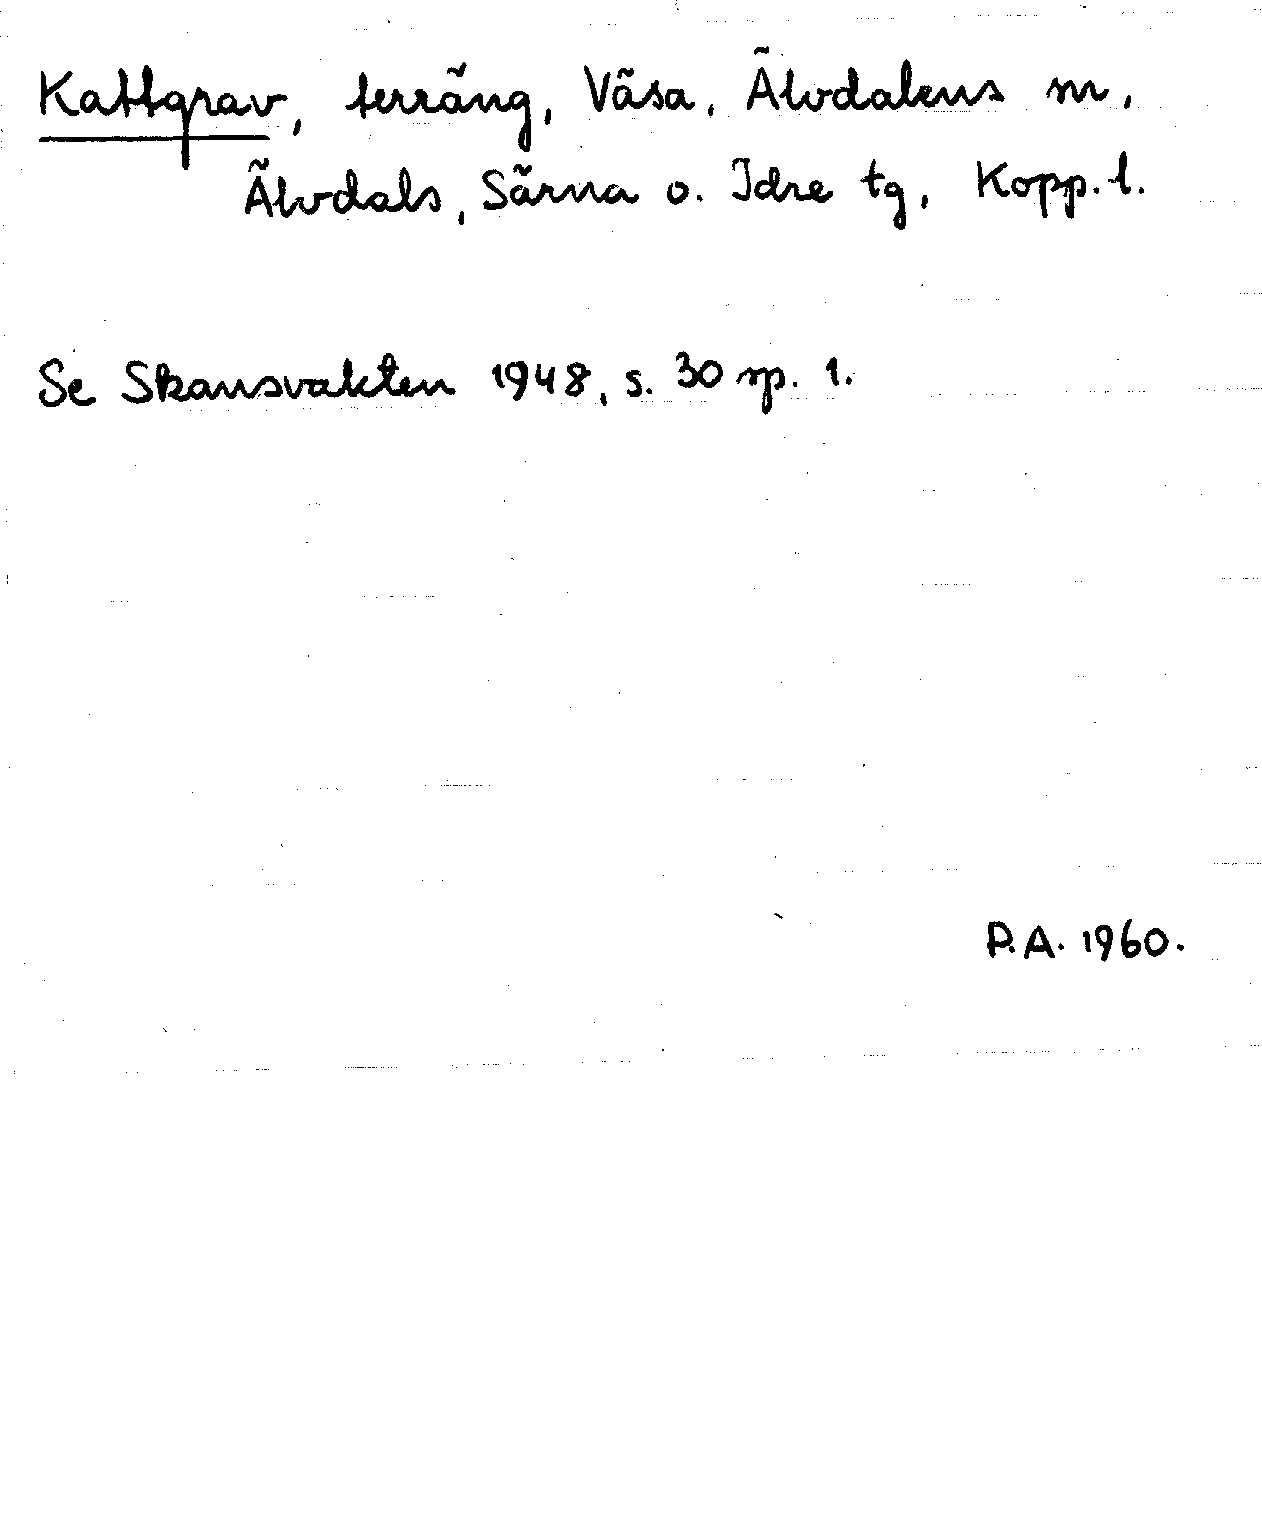 Kattgrav, terräng, Väsa, Älvdalens m,
Älvdals, Särna o. Idre tg, Kopp. l.
Se Skansvakten 1948, s. 30 sp. 1.
P.A. 1960.